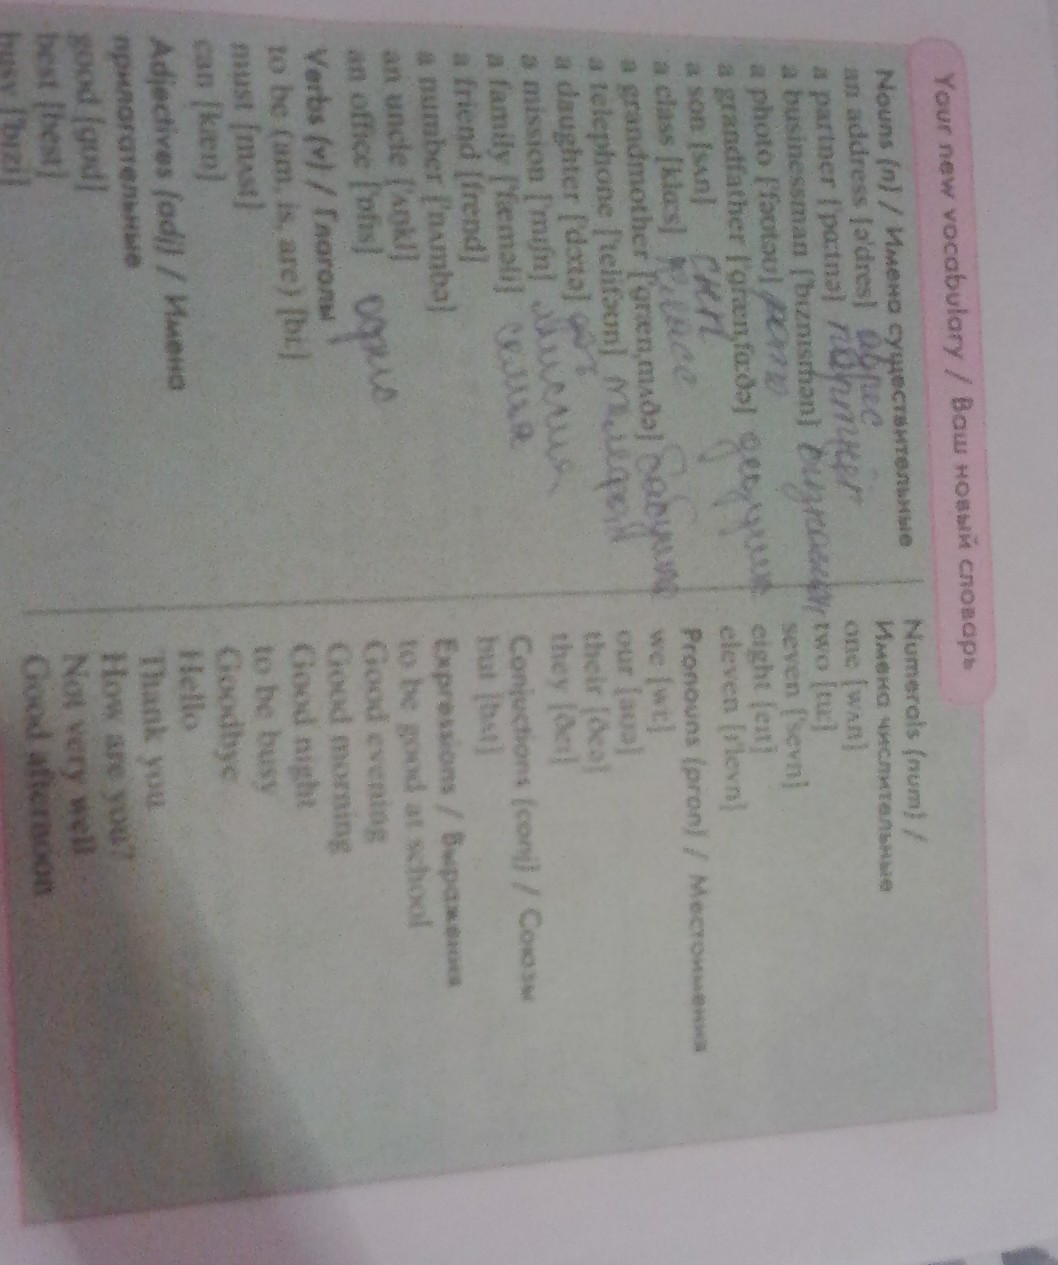 Your new vocabulary / Ваш новый словарь
Nouns (n) / Имена существительные
an address [ə'dres] адрес
a partner ['pɑːtnə] партнёр
a businessman ['bɪznɪsmən] бизнесмен
a photo ['fəʊtəʊ] фото
a grandfather ['græn,fɑːðə] дедушка
a son [sʌn] сын
a class [klɑːs] класс
a grandmother ['græn,mʌðə] бабушка
a telephone ['telɪfəʊn] телефон
a daughter ['dɔːtə]
a mission ['mɪʃn] миссия
a family ['fæməli] семья
a friend [frend]
a number ['nʌmbə]
an uncle ['ʌŋkl]
an office ['ɒfɪs] офис
Verbs (v) / Глаголы
to be (am, is, are) [biː]
must [mʌst]
can [kæn]
Adjectives (adj) / Имена
прилагательные
good [gʊd]
best [best]
busy ['bɪzi]
Numerals (num) /
Имена числительные
one [wʌn]
two [tuː]
seven ['sevn]
eight [eɪt]
eleven [ɪ'levn]
Pronouns (pron) / Местоимения
we [wiː]
our [aʊə]
their [ðeə]
they [ðeɪ]
Conjuctions (conj) / Союзы
but [bʌt]
Expressions / Выражения
to be good at school
Good evening
Good morning
Good night
to be busy
Goodbye
Hello
Thank you
How are you?
Not very well
Good afternoon